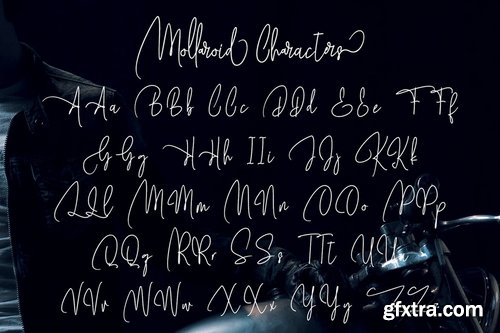 Mollaroid Characters
AAa BBb CCc DDd EEe FFf
GGg HHh IIi JJj KKk
LLl MMm NNn OOo PPp
QQq RRr SSs TTt UUu
VVv WWw XXx YYy ZZz
gfxtra.com